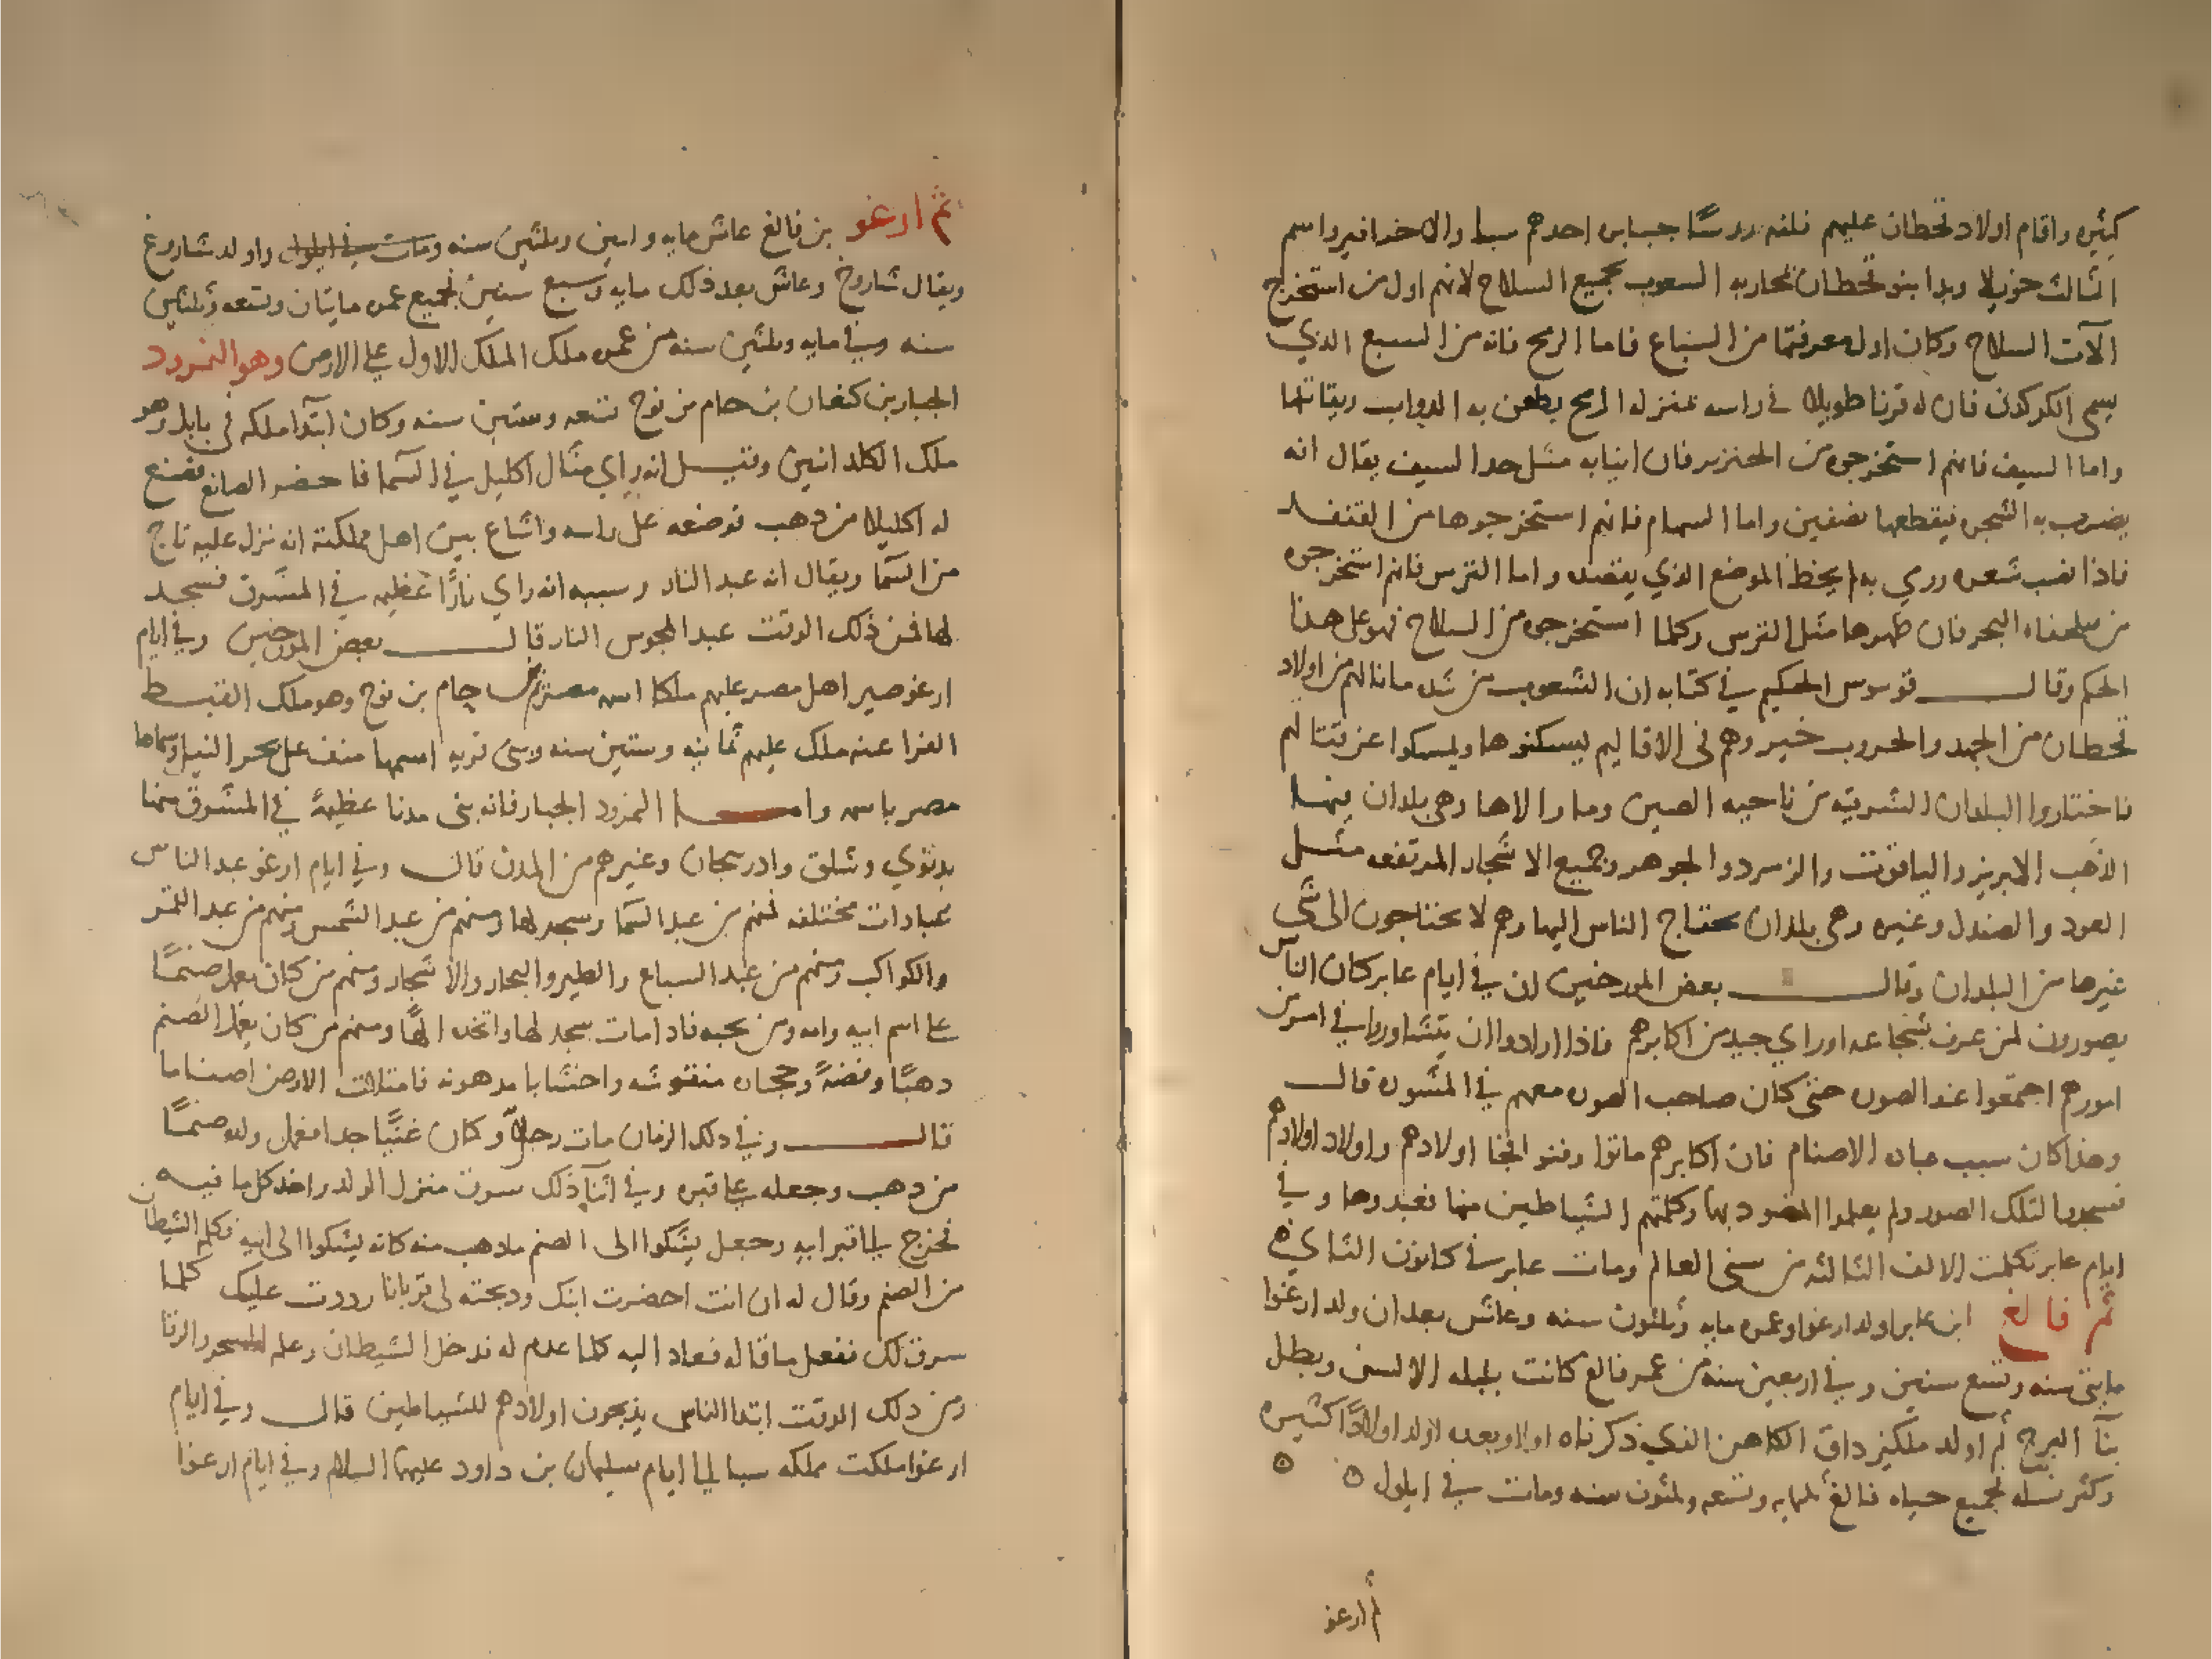 كثيره واقام اولاد قحطان عليهم ثلثه روسًا جبابره احدهم سبا والاخر افير واسم
الثالث حويلا وبدا بنو قحطان بمحاربه الشعوب بجميع السلاح لانهم اول من استخرج
الآت السلاح وكان اول معرفتها من السباع فاما الرمح فانه من السبع الذي
يسمى الكركدن فان له قرنا طويلا في راسه بمنزله الرمح يطعن به الدواب ويقاتلها
واما السيف فانهم استخرجوه من الخنزير فان انيابه مثل حد السيف يقال انه
يضرب به الشجره فيقطعها نصفين واما السهام فانهم استخرجوها من القنفد
فاذا نصب شعره ورمي به لم يخط الموضع الذي يقصده واما الترس فانهم استخرجوه
من سلحفاه البحر فان ظهرها مثل الترس وكلما استخرجوه من السلاح فهو على هذا
الحكم وقال توسوس الحكيم في كتابه ان الشعوب من شده ما نالهم من اولاد
قحطان من الجهد والحروب خيروهم في الاقاليم ليسكنوها ويمسكوا عن قتالهم
فاختاروا البلدان الشرقيه من ناحيه الصين وما والاها وهي بلدان فيها
الذهب الابريز والياقوت والزمرد والجوهر وجميع الاشجار المرتفعه مثل
العود والصندل وغيره وهي بلدان يحتاج الناس اليها وهم لا يحتاجون الى شي
غيرها من البلدان وقال بعض المورخين ان في ايام عابر كان الناس
يصورون لمن عرف بشجاعه او راي جيد من اكابرهم فاذا ارادوا ان يتشاوروا في امر من
امورهم اجتمعوا عند الصوره حتى كان صاحب الصوره معهم في المشوره قال
وهذا كان سبب عباده الاصنام فان اكابرهم ماتوا وفنوا اولادهم واولاد اولادهم
فسجدوا لتلك الصور ولم يعلموا المقصود بها وكلمتهم الشياطين منها فعبدوها وفي
ايام عابر تكملت الالف الثالثه من سني العالم ومات عابر في كانون الثاني
ثم فالغ ابن عابر اولد ارغوا وعمره مايه وثلثون سنه وعاش بعد ان ولد ارغوا
مايتي سنه وتسع سنين وفي اربعين سنه من عمر فالغ كانت بلبله الالسن وبطل
بنآ البرج ثم اولد ملكيزداق الكاهن الذي ذكرناه اولا وبعده اولد اولادًا كثيره
وكثر نسله فجميع حياه فالغ ثلثمايه وتسعه وثلثون سنه ومات في ايلول
ثم ارغو
ثم ارغو بن فالغ عاش مايه واثنين وثلثين سنه ومات في ايلول واولد شاروع
ويقال شاروخ وعاش بعد ذلك مايه وسبع سنين فجميع عمره مايتان وتسعه وثلثين
سنه وفي مايه وثلثين سنه من عمره ملك الملك الاول على الارض وهو النمرود
الجبار بن كنعان بن حام بن نوح تسعه وستين سنه وكان ابتدآ ملكه في بابل وهو
ملك الكلدانين وقيل انه راي مثال اكليل في السما فاحضر الصانع فصنع
له اكليلا من دهب فوضعه على راسه واشاع بين اهل مملكته انه نزل عليه تاج
من السما ويقال انه عبد النار وسببه انه راي نارًا عظيمه في المشرق فسجد
لها فمن ذلك الوقت عبد المجوس النار قال بعض المورخين وفي ايام
ارغو صير اهل مصر عليهم ملكا اسمه مصر حام بن نوح وهو ملك القبط
الفراعنه ملك عليهم ثمانيه وستين سنه وبنى قريه اسمها منف على بحر النيل وسماها
مصر باسمه واما النمرود الجبار فانه بنى مدنا عظيمهً في المشرق منها
وشلق وادربيجان وغيرهم من المدن قال وفي ايام ارغو عبد الناس
عبادات مختلفه فمنهم من عبد السما وسجد لها ومنهم من عبد الشمس ومنهم من عبد القمر
والكواكب ومنهم من عبد السباع والطير والبحار والاشجار ومنهم من كان يعمل صنمًا
على اسم ابيه وامه ومن يحبه فاذا مات سجد لها واتخد الهًا ومنهم من كان يعمل الصنم
دهبًا وفضهً وحجاره منقوشه واخشابا مدهونه فامتلات الارض اصناما
قال وفي دلك الزمان مات رجلاً وكان غنيًا جدا فعمل ولده صنمًا
من دهب وجعله على قبره وفي اثنآ ذلك سرق منزل الولد واخذ كل ما فيه
فخرج الى قبر ابيه وجعل يشكوا الى الصنم ما دهب منه كانه يشكوا الى ابيه فكلمه الشيطان
من الصنم وقال له ان انت احضرت ابنك ودبحته لي قربانا رددت عليك كلما
سرق لك ففعل ما قاله فعاد اليه كلما عدم له فدخل الشيطان وعلم السحر والزنا
ومن دلك الوقت ابتدا الناس يذبحون اولادهم للشياطين قال وفي ايام
ارغوا ملكت مملكه سبا الى ايام سليمان بن داود عليهما السلام وفي ايام ارغوا